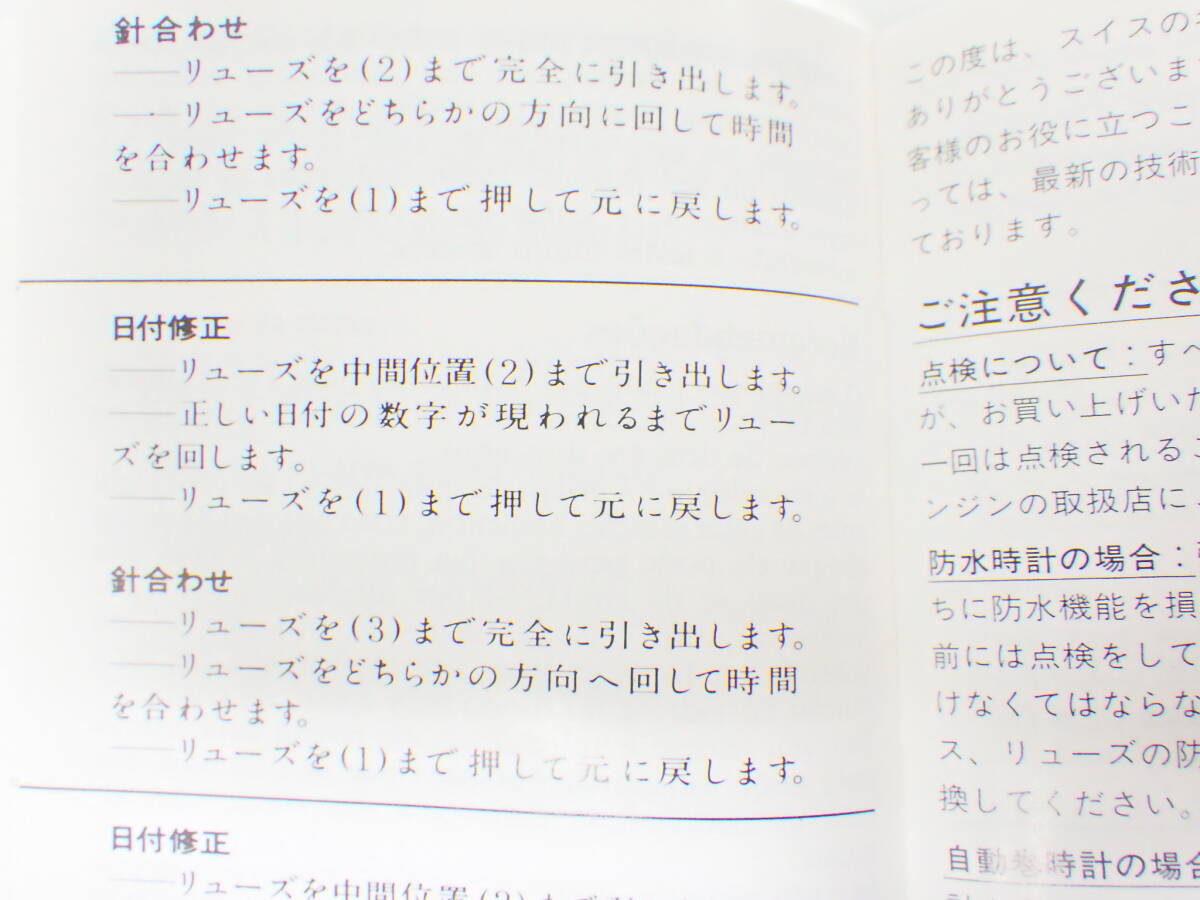 針合わせ
——リューズを(2)まで完全に引き出します。
——リューズをどちらかの方向に回して時間
を合わせます。
——リューズを(1)まで押して元に戻します。
日付修正
——リューズを中間位置(2)まで引き出します。
——正しい日付の数字が現われるまでリュー
ズを回します。
——リューズを(1)まで押して元に戻します。
針合わせ
——リューズを(3)まで完全に引き出します。
——リューズをどちらかの方向へ回して時間
を合わせます。
——リューズを(1)まで押して元に戻します。
日付修正
——リューズを中間位置(2)まで
この度は、スイスの
ありがとうございま
客様のお役に立つこ
っては、最新の技術
ております。
ご注意くださ
点検について：すべ
が、お買い上げいた
一回は点検されるこ
ンジンの取扱店に
防水時計の場合：
ちに防水機能を損
前には点検をして
けなくてはならな
ス、リューズの防
換してください。
自動巻時計の場合